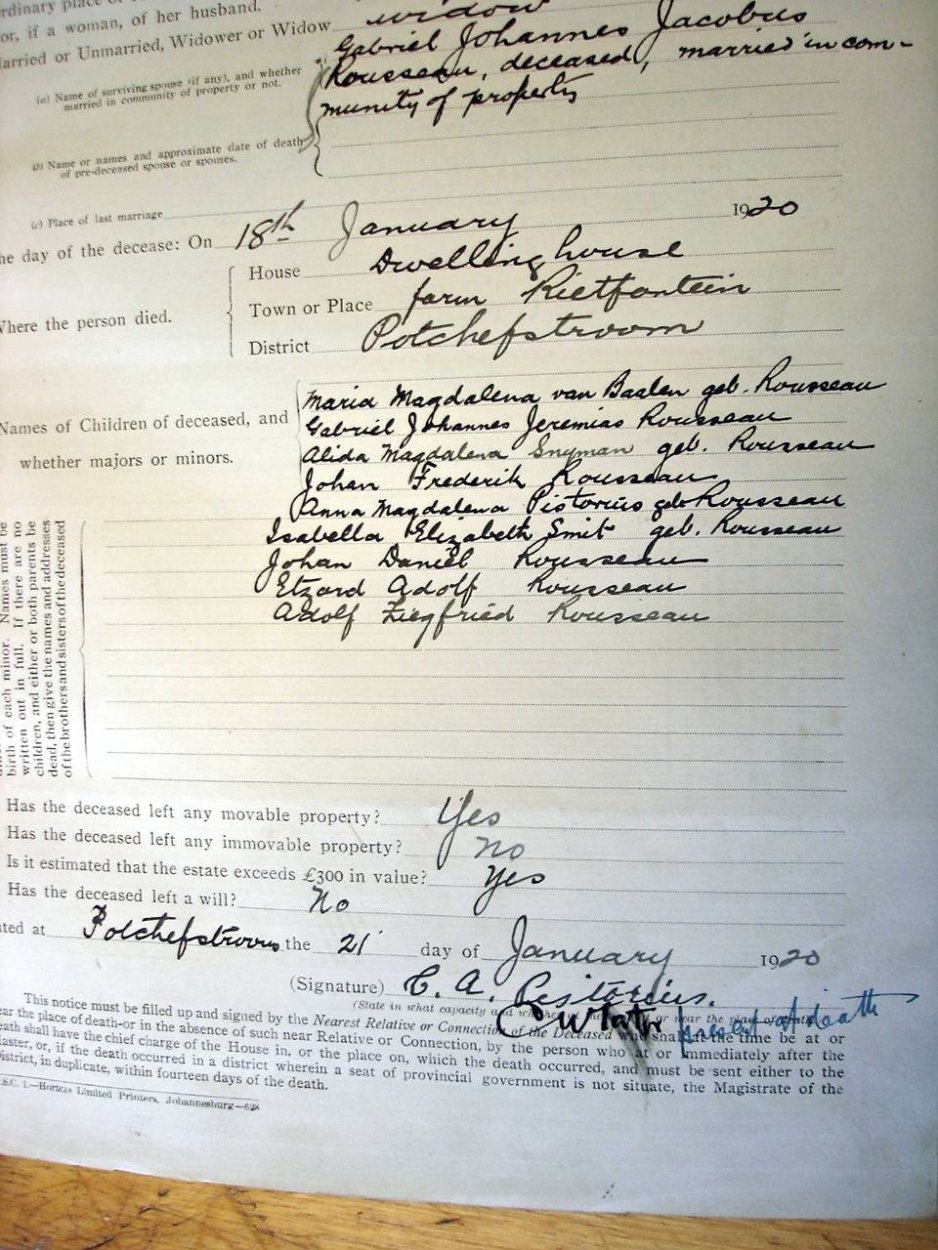 rdinary place
or, if a woman, of her husband.
arried or Unmarried, Widower or Widow widow
(a) Name of surviving spouse (if any), and whether married in community of property or not.
Gabriel Johannes Jacobus
Rousseau, deceased, married in com-
munity of property
(b) Name or names and approximate date of death of pre-deceased spouse or spouses.
(c) Place of last marriage
he day of the decease: On 18th January 1920
Where the person died.
House Dwelling house
Town or Place farm Rietfontein
District Potchefstroom
Names of Children of deceased, and
whether majors or minors.
Maria Magdalena van Baalen geb. Rousseau
Gabriel Johannes Jeremias Rousseau
Alida Magdalena Snyman geb. Rousseau
Johan Frederik Rousseau
Anna Magdalena Pistorius geb Rousseau
Isabella Elizabeth Smit geb. Rousseau
Johan Daniel Rousseau
Etzard Adolf Rousseau
Adolf Ziegfried Rousseau
birth of each minor. Names must be
written out in full. If there are no
children, and either or both parents be
dead, then give the names and addresses
of the brothers and sisters of the deceased
Has the deceased left any movable property? Yes
Has the deceased left any immovable property? No
Is it estimated that the estate exceeds £300 in value? Yes
Has the deceased left a will? No
ted at Potchefstroom the 21 day of January 1920
(Signature) C. A. Pistorius.
(State in what capacity and
present at death
This notice must be filled up and signed by the Nearest Relative or Connection of the Deceased who shall at the time be at or
ear the place of death—or in the absence of such near Relative or Connection, by the person who at or immediately after the
eath shall have the chief charge of the House in, or the place on, which the death occurred, and must be sent either to the
aster, or, if the death occurred in a district wherein a seat of provincial government is not situate, the Magistrate of the
istrict, in duplicate, within fourteen days of the death.
S.C. 1.—Hortors Limited Printers, Johannesburg—628